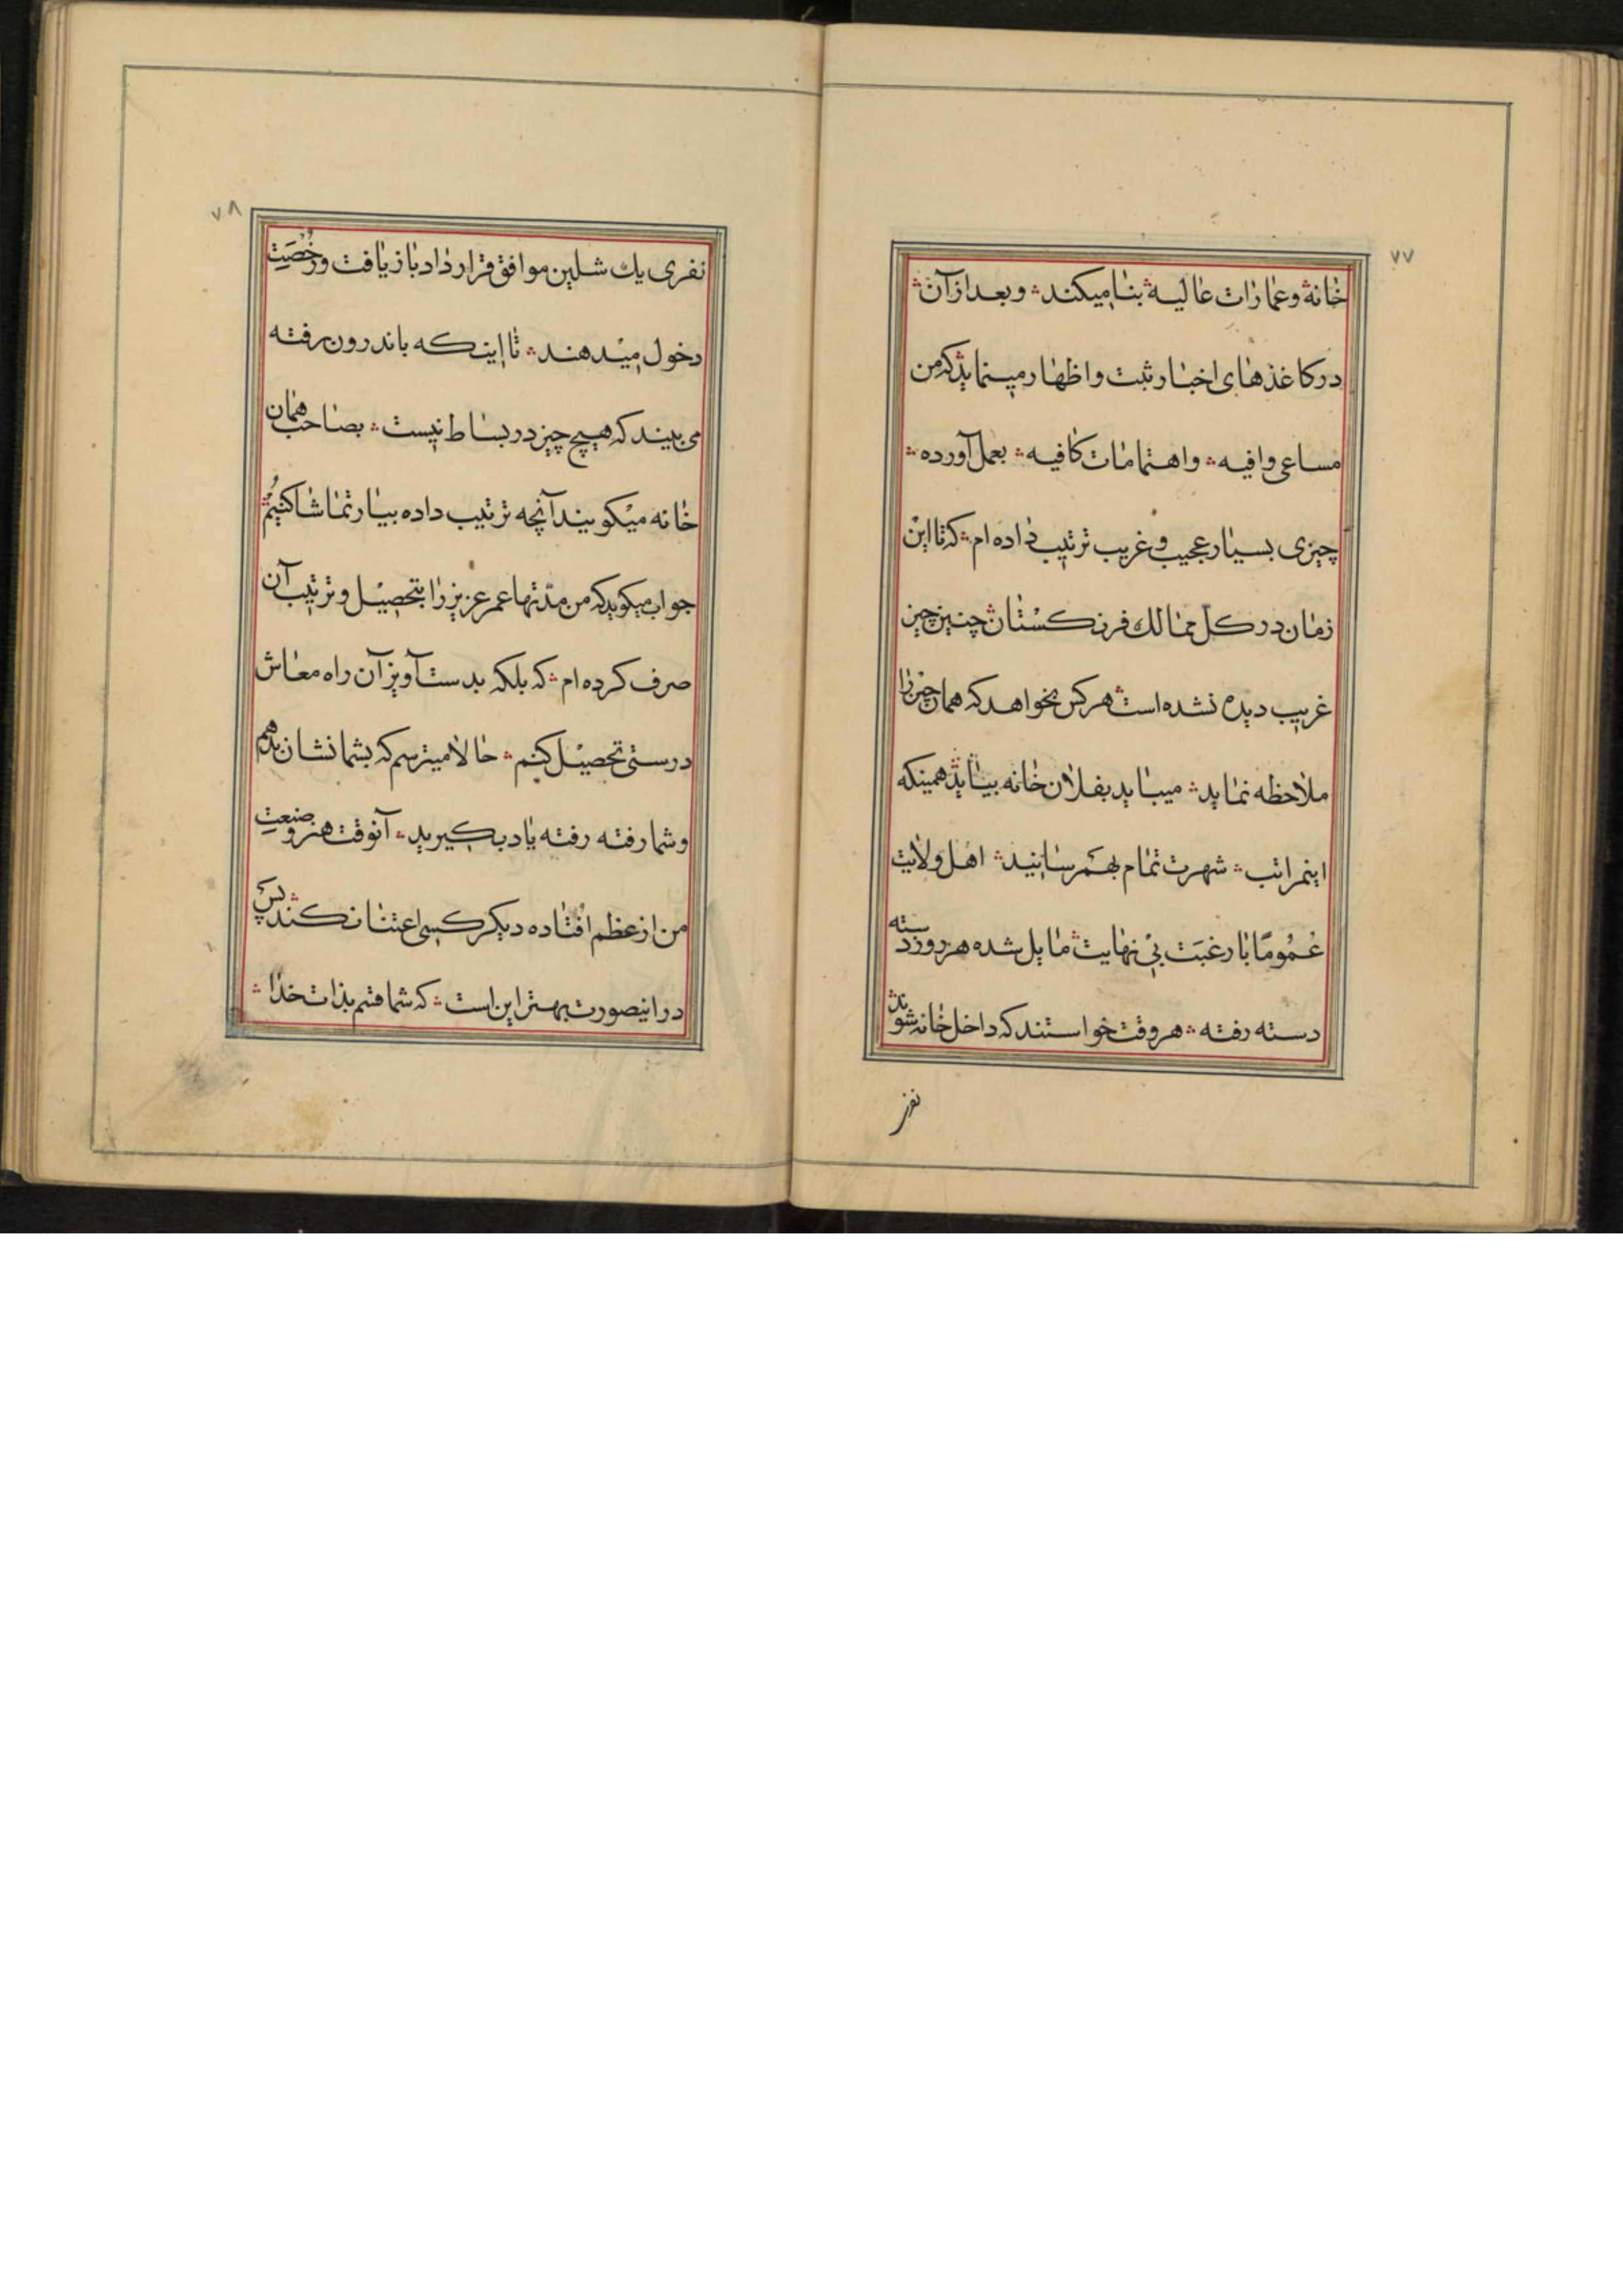 ۷۷
خانه و عمارات عالیه بنا میکند ؞ و بعد از آن ؞
در کاغذهای اخبار ثبت و اظهار مینماید ؞ که من
مساعی وافیه ؞ و اهتمامات کافیه ؞ بعمل آورده ؞
چیزی بسیار عجیب و غریب ترتیب داده ام ؞ که تا این
زمان در کل ممالک فرنکستان ؞ چنین چیز
غریب دیده نشده است ؞ هر کس بخواهد که همان چیز را
ملاحظه نماید ؞ میباید بفلان خانه بیاید ؞ همینکه
اینمراتب ؞ شهرت تمام بهمرسانید ؞ اهل ولایت
عُمُومًا با رغبَت بی نهایت ؞ مایل شده هر روز دسته
دسته رفته ؞ هر وقت خواستند که داخل خانه شوند ؞
نفر
۷۸
نفری یک شلین موافق قرار داد باز یافت و رُخصَتِ
دخول میدهند ؞ تا اینکه باندرون رفته
می بیند که هیچ چیز در بساط نیست ؞ بصاحب همان
خانه میکویند آنچه ترتیب داده بیار تماشا کنیم ؞
جواب میکوید که من مدّتها عمر عزیز را بتحصیل و ترتیب آن
صرف کرده ام ؞ که بلکه بدست آویز آن راه معاش
درستی تحصیل کنم ؞ حالا میترسم که بشما نشان بدهم
و شما رفته رفته یاد بکیرید ؞ آنوقت هنر و صنعتِ
من از عظم افتاده دیکر کسی اعتنا نکند ؞ پس
در اینصورت بهتر این است ؞ که شما قسم بذات خدا ؞